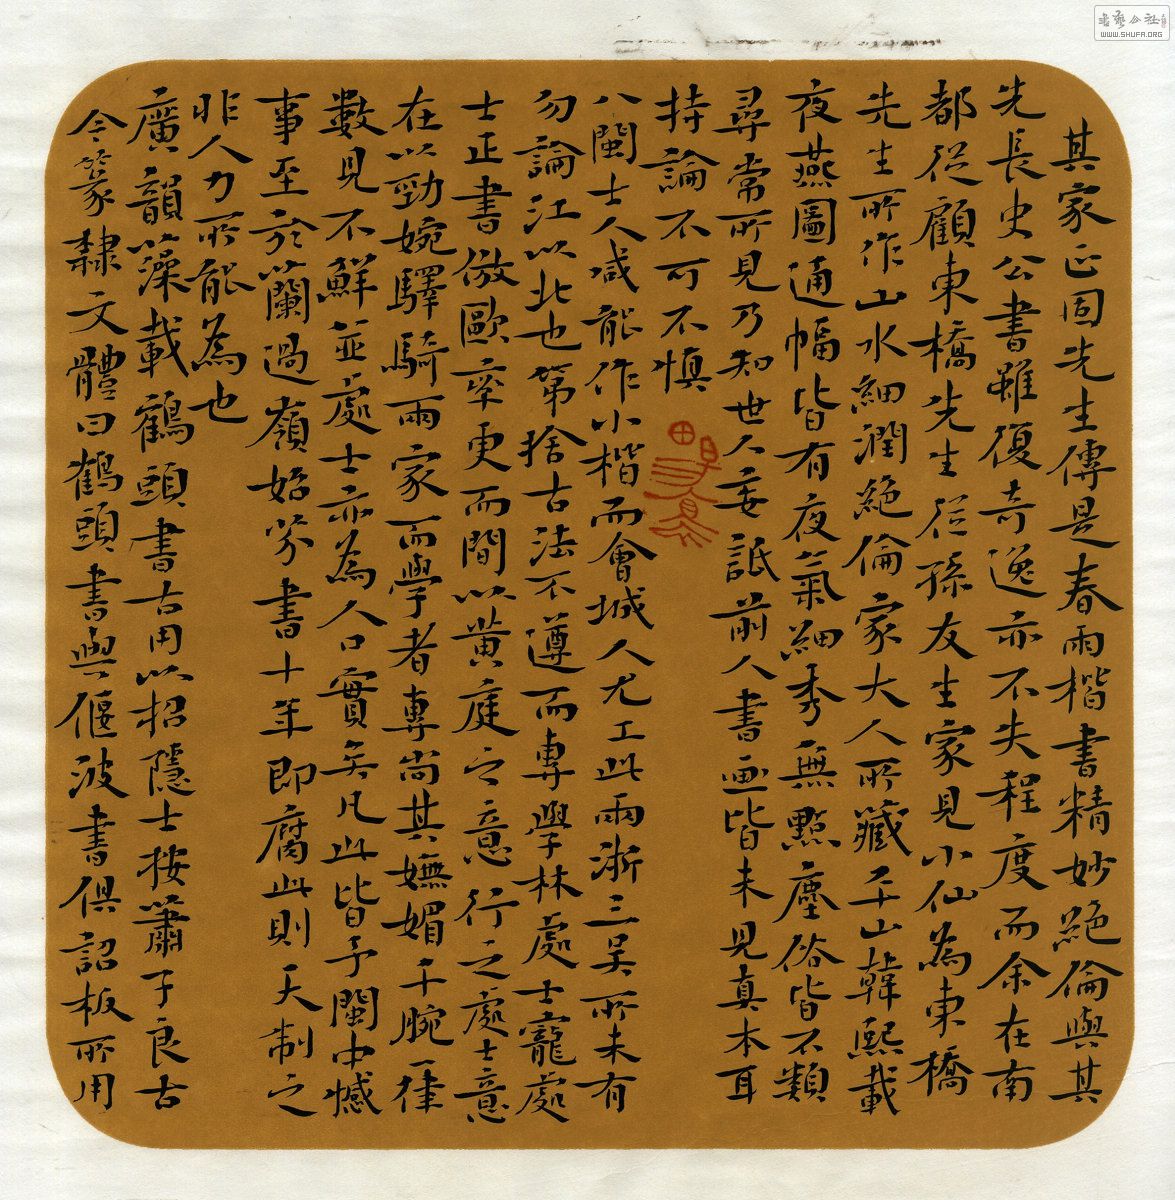 其家正固先生傳是春雨楷書精妙絕倫與其
先長史公書雖復奇逸亦不失程度而余在南
都從顧東橋先生從孫友生家見小仙為東橋
先生所作山水細潤絕倫家大人所藏平山韓熙載
夜燕圖通幅皆有夜氣細秀無點塵俗皆不類
尋常所見乃知世人妄詆前人書画皆未見真本耳
持論不可不慎
八閩士人咸能作小楷而會城人尤工此兩浙三吴所未有
勿論江以北也第捨古法不遵而專學林處士寵處
士正書倣歐率更而間以黄庭之意行之處士意
在以勁婉驛騎兩家而學者專尚其嫵媚千腕一律
數見不鮮並處士亦為人口實矣凡此皆予閩中憾
事至於蘭過嶺始芬書十年即腐此則天制之
非人力所能為也
廣韻藻載鶴頭書古用以招隱士按蕭子良古
今篆隸文體曰鶴頭書與偃波書俱詔板所用
書藝公社
WWW.SHUFA.ORG